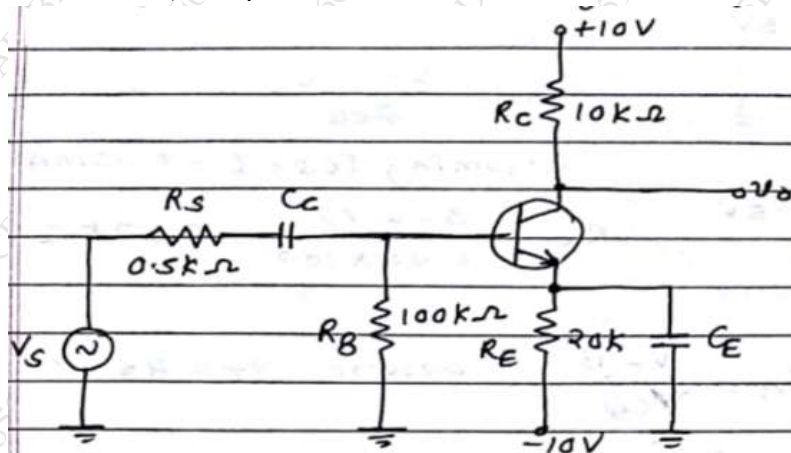 +10V
RC 10KΩ
RS CC
0.5KΩ
vo
100KΩ
RB
RE 20K CE
VS
-10V